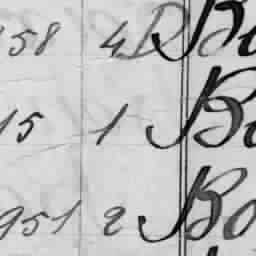 158 4 Bo
15 1 Bo
951 2 Bo